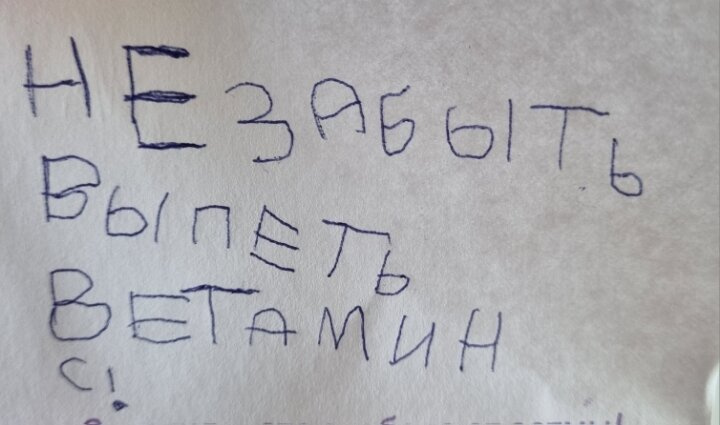 НЕ ЗАБЫТЬ
ВЫПЕТЬ
ВЕТАМИН
С!